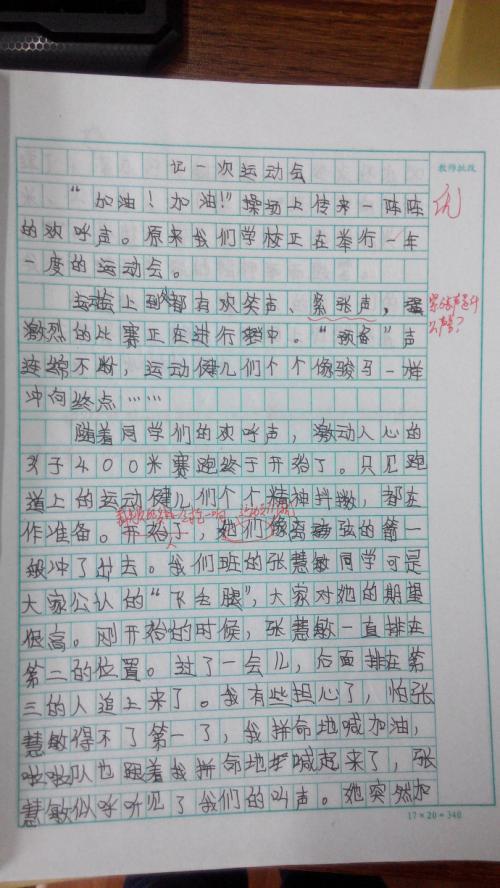 记一次运动会
教师批改
"加油！加油！"操场上传来一阵阵
的欢呼声。原来我们学校正在举行一年
一度的运动会。
运动会上到处都有欢笑声、紧张声，
紧张声是什么声音？
激烈的比赛正在进行当中。"预备"声
连绵不断，运动健儿们个个像骏马一样
冲向终点……
随着同学们的欢呼声，激动人心的
女子400米赛跑终于开始了。只见跑
道上的运动健儿们个个精神抖擞，都在
作准备。开始了，她们像离弦的箭一
般冲了过去。我们班的张慧敏同学可是
大家公认的"飞毛腿"，大家对她的期望
很高。刚开始的时候，张慧敏一直排在
第二的位置。过了一会儿，后面排在第
三的人追上来了。我有些担心了，怕张
慧敏得不了第一了，我拼命地喊加油，
啦啦队也跟着我拼命地喊起来了，张
慧敏似乎听见了我们的叫声。她突然加
17×20=340